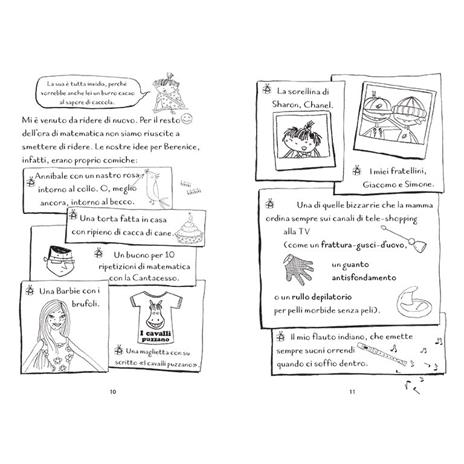 La sua è tutta invidia, perché
vorrebbe anche lei un burro cacao
al sapore di caccola.
Mi è venuto da ridere di nuovo. Per il resto
dell'ora di matematica non siamo riuscite a
smettere di ridere. Le nostre idee per Berenice,
infatti, erano proprio comiche:
Annibale con un nastro rosa
intorno al collo. O, meglio
ancora, intorno al becco.
Una torta fatta in casa
con ripieno di cacca di cane.
Un buono per 10
ripetizioni di matematica
con la Cantacesso.
Una Barbie con i
brufoli.
I cavalli
puzzano
Una maglietta con su
scritto «I cavalli puzzano».
10
La sorellina di
Sharon, Chanel.
I miei fratellini,
Giacomo e Simone.
Una di quelle bizzarrie che la mamma
ordina sempre sui canali di tele-shopping
alla TV
(come un frattura-gusci-d'uovo,
un guanto
antisfondamento
o un rullo depilatorio
per pelli morbide senza peli).
Il mio flauto indiano, che emette
sempre suoni orrendi
quando ci soffio dentro.
11